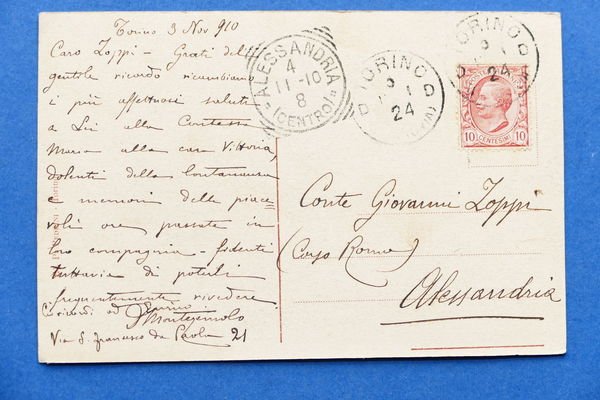 Torino 3 Nov 910
Caro Zoppi - Grati del
gentile ricordo ricambiamo
i più affettuosi saluti
a Lei alla Contessa
Maria alla cara Vittoria,
dolenti della lontananza
e memori delle piace-
voli ore passate in
loro compagnia - fidenti
tuttavia di poterli
frequentemente rivedere.
Montezemolo
Via S. Francesco da Paola 21
ALESSANDRIA
4
11-10
8
(CENTRO)
TORINO
24
TORINO
24
10 CENTESIMI 10
Conte Giovanni Zoppi
(Corso Roma)
Alessandria